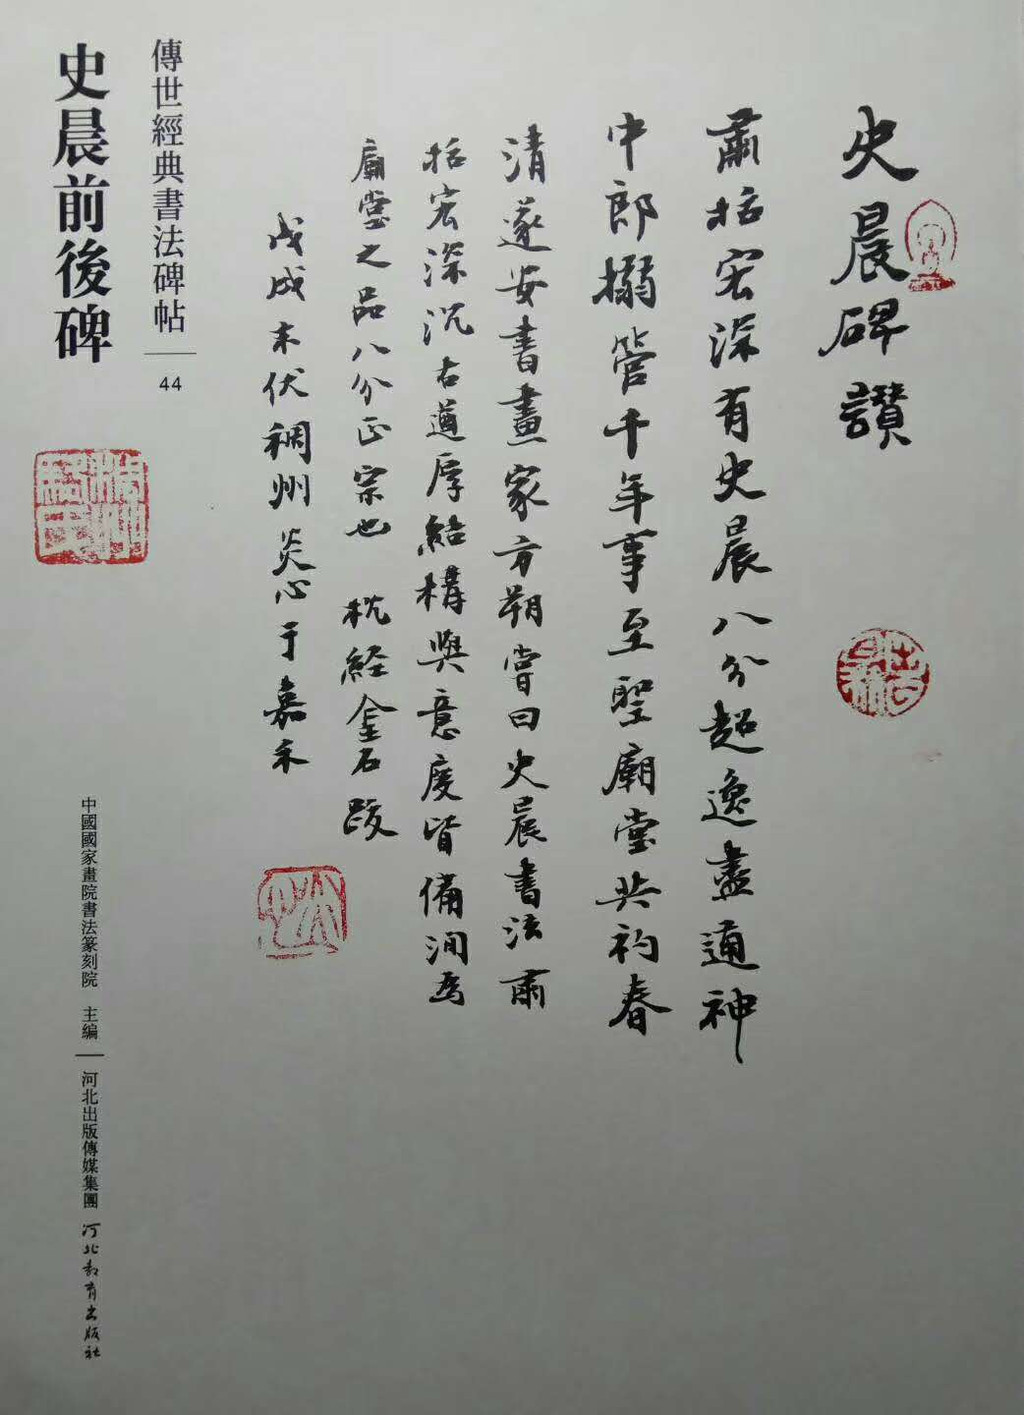 史晨碑讚
肅括宏深有史晨八分超逸盡通神
中郎搦管千年事至聖廟堂共礿春
清遂安書畫家方朔嘗曰史晨書法肅
括宏深沉古遒厚結構與意度皆備洵爲
廟堂之品八分正宗也 枕経金石跋
戊戌末伏稠州炎心于嘉禾
傳世經典書法碑帖
44
史晨前後碑
中國國家畫院書法篆刻院 主編
河北出版傳媒集團 河北教育出版社